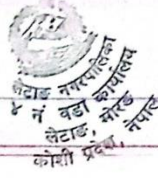 लेटाङ नगरपालिका
४ नं वडा कार्यालय
लेटाङ, मोरङ
कोशी प्रदेश, नेपाल